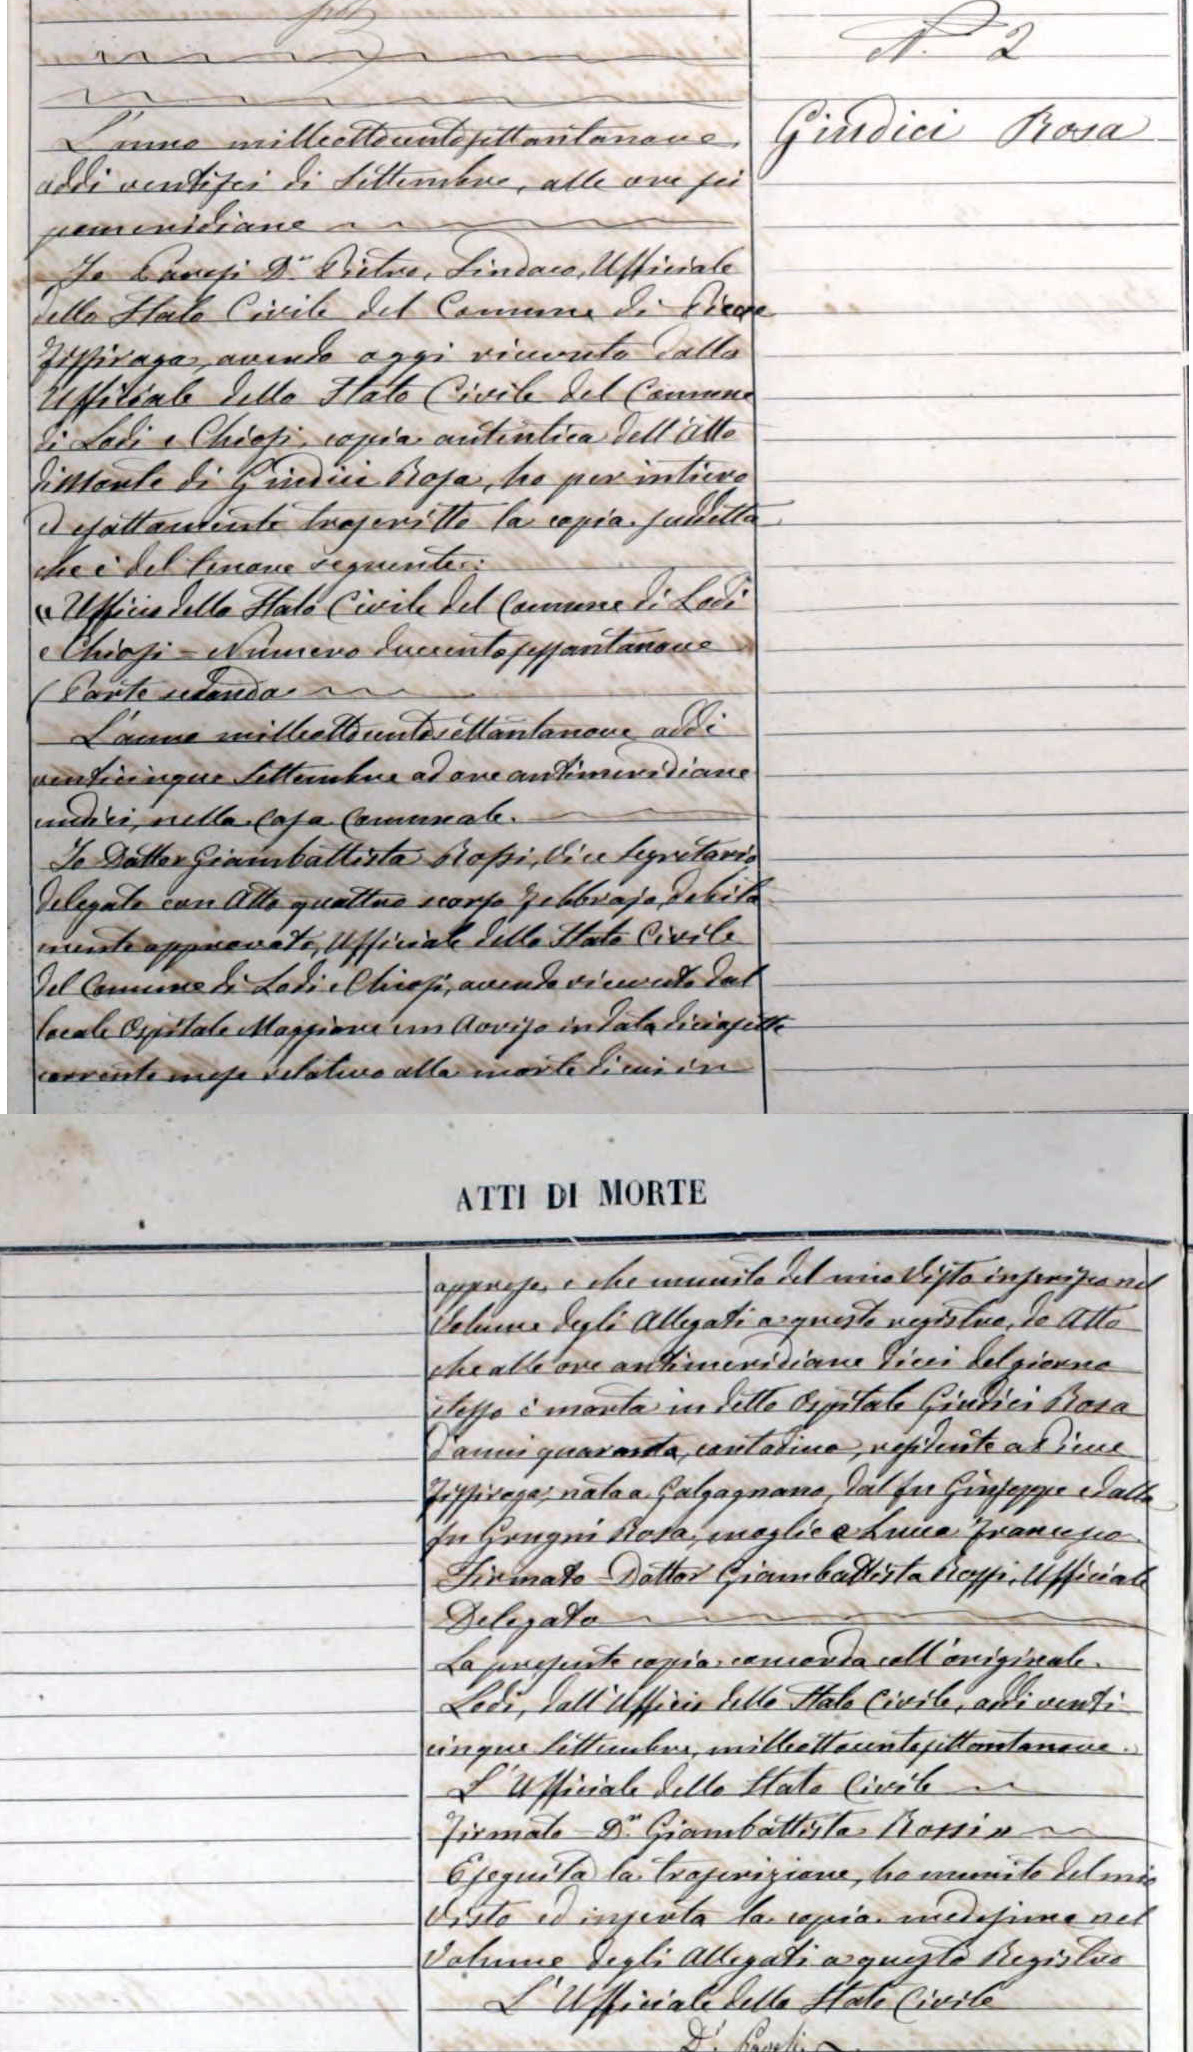 N.º 2
Giudici Rosa
L'anno milleottocentosettantanove,
addì ventisei di Settembre, alle ore sei
pomeridiane
Io Pavesi D.r Pietro, Sindaco, Ufficiale
dello Stato Civile del Comune di Pieve
Fissiraga, avendo oggi ricevuto dallo
Ufficiale dello Stato Civile del Comune
di Lodi e Chiosi, copia autentica dell'Atto
di Morte di Giudici Rosa, ho per intiero
ed esattamente trascritto la copia suddetta
che è del tenore seguente:
"Ufficio dello Stato Civile del Comune di Lodi
e Chiosi - Numero duecentosessantanove
(Parte seconda
L'anno milleottocentosettantanove addì
venticinque Settembre ad ore antimeridiane
undici, nella Casa Comunale.
Io Dottor Giambattista Rossi, Vice Segretario
delegato con Atto quattro scorso Febbrajo, debita
mente approvato, Ufficiale dello Stato Civile
del Comune di Lodi e Chiosi, avendo ricevuto dal
locale Ospitale Maggiore un Avviso in data diciasette
corrente mese relativo alla morte di cui in
ATTI DI MORTE
appresso, e che munito del mio Visto inserisco nel
Volume degli Allegati a questo registro, do Atto
che alle ore antimeridiane dieci del giorno
stesso è morta in detto Ospitale Giudici Rosa
d'anni quaranta, contadina, residente a Pieve
Fissiraga, nata a Galgagnano, dal fu Giuseppe e dalla
fu Grugni Rosa, moglie a Luca Francesco
Firmato Dottor Giambattista Rossi, Ufficiale
Delegato
La presente copia concorda coll'originale.
Lodi, dall'Ufficio dello Stato Civile, addì venti
cinque Settembre, milleottocentosettantanove.
L'Ufficiale dello Stato Civile
Firmato D.r Giambattista Rossi"
Eseguita la trascrizione, ho munito del mio
Visto ed inserta la copia medesima nel
Volume degli Allegati a questo Registro
L'Ufficiale dello Stato Civile
D.r Pavesi